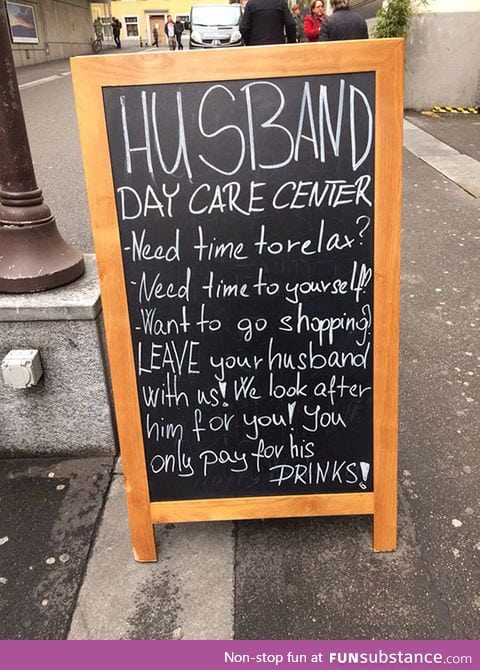 HUSBAND
DAY CARE CENTER
-Need time to relax?
-Need time to yourself?
-Want to go shopping?
LEAVE your husband
with us! We look after
him for you! You
only pay for his
DRINKS!
Non-stop fun at FUNsubstance.com